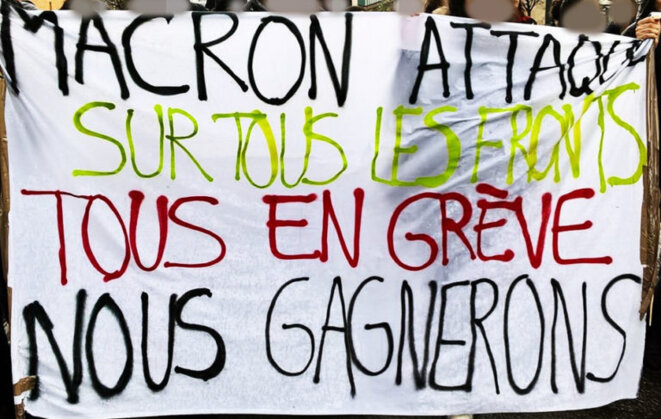 MACRON ATTAQUE
SUR TOUS LES FRONTS
TOUS EN GRÈVE
NOUS GAGNERONS